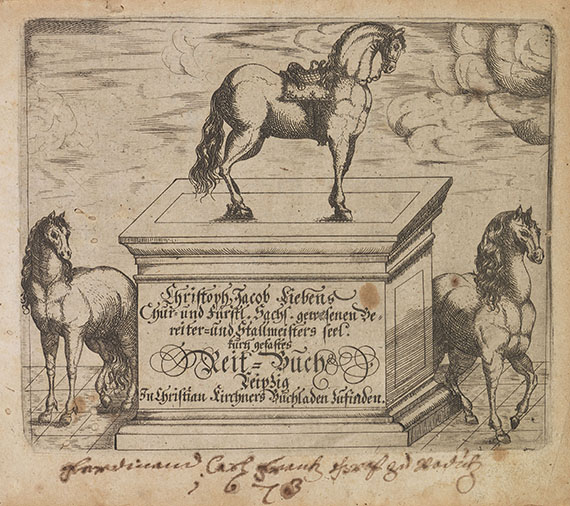 Christoph Jacob Liebens
Chur- und Fürstl. Sächs. gewesenen Be-
reiter- und Stallmeisters seel.
kurtz gefastes
Reit-Buch
Leipzig
In Christian Kirchners Buchladen Zufinden.
Ferdinand Carl Frantz
1673